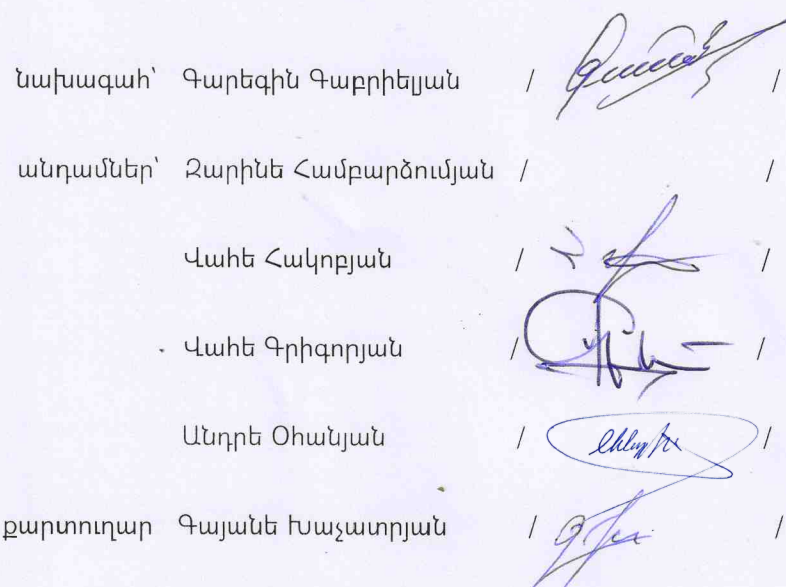 նախագահ՝ Գարեգին Գաբրիելյան / /
անդամներ՝ Զարինե Համբարձումյան / /
Վահե Հակոբյան / /
Վահե Գրիգորյան / /
Անդրե Օհանյան / /
քարտուղար Գայանե Խաչատրյան / /